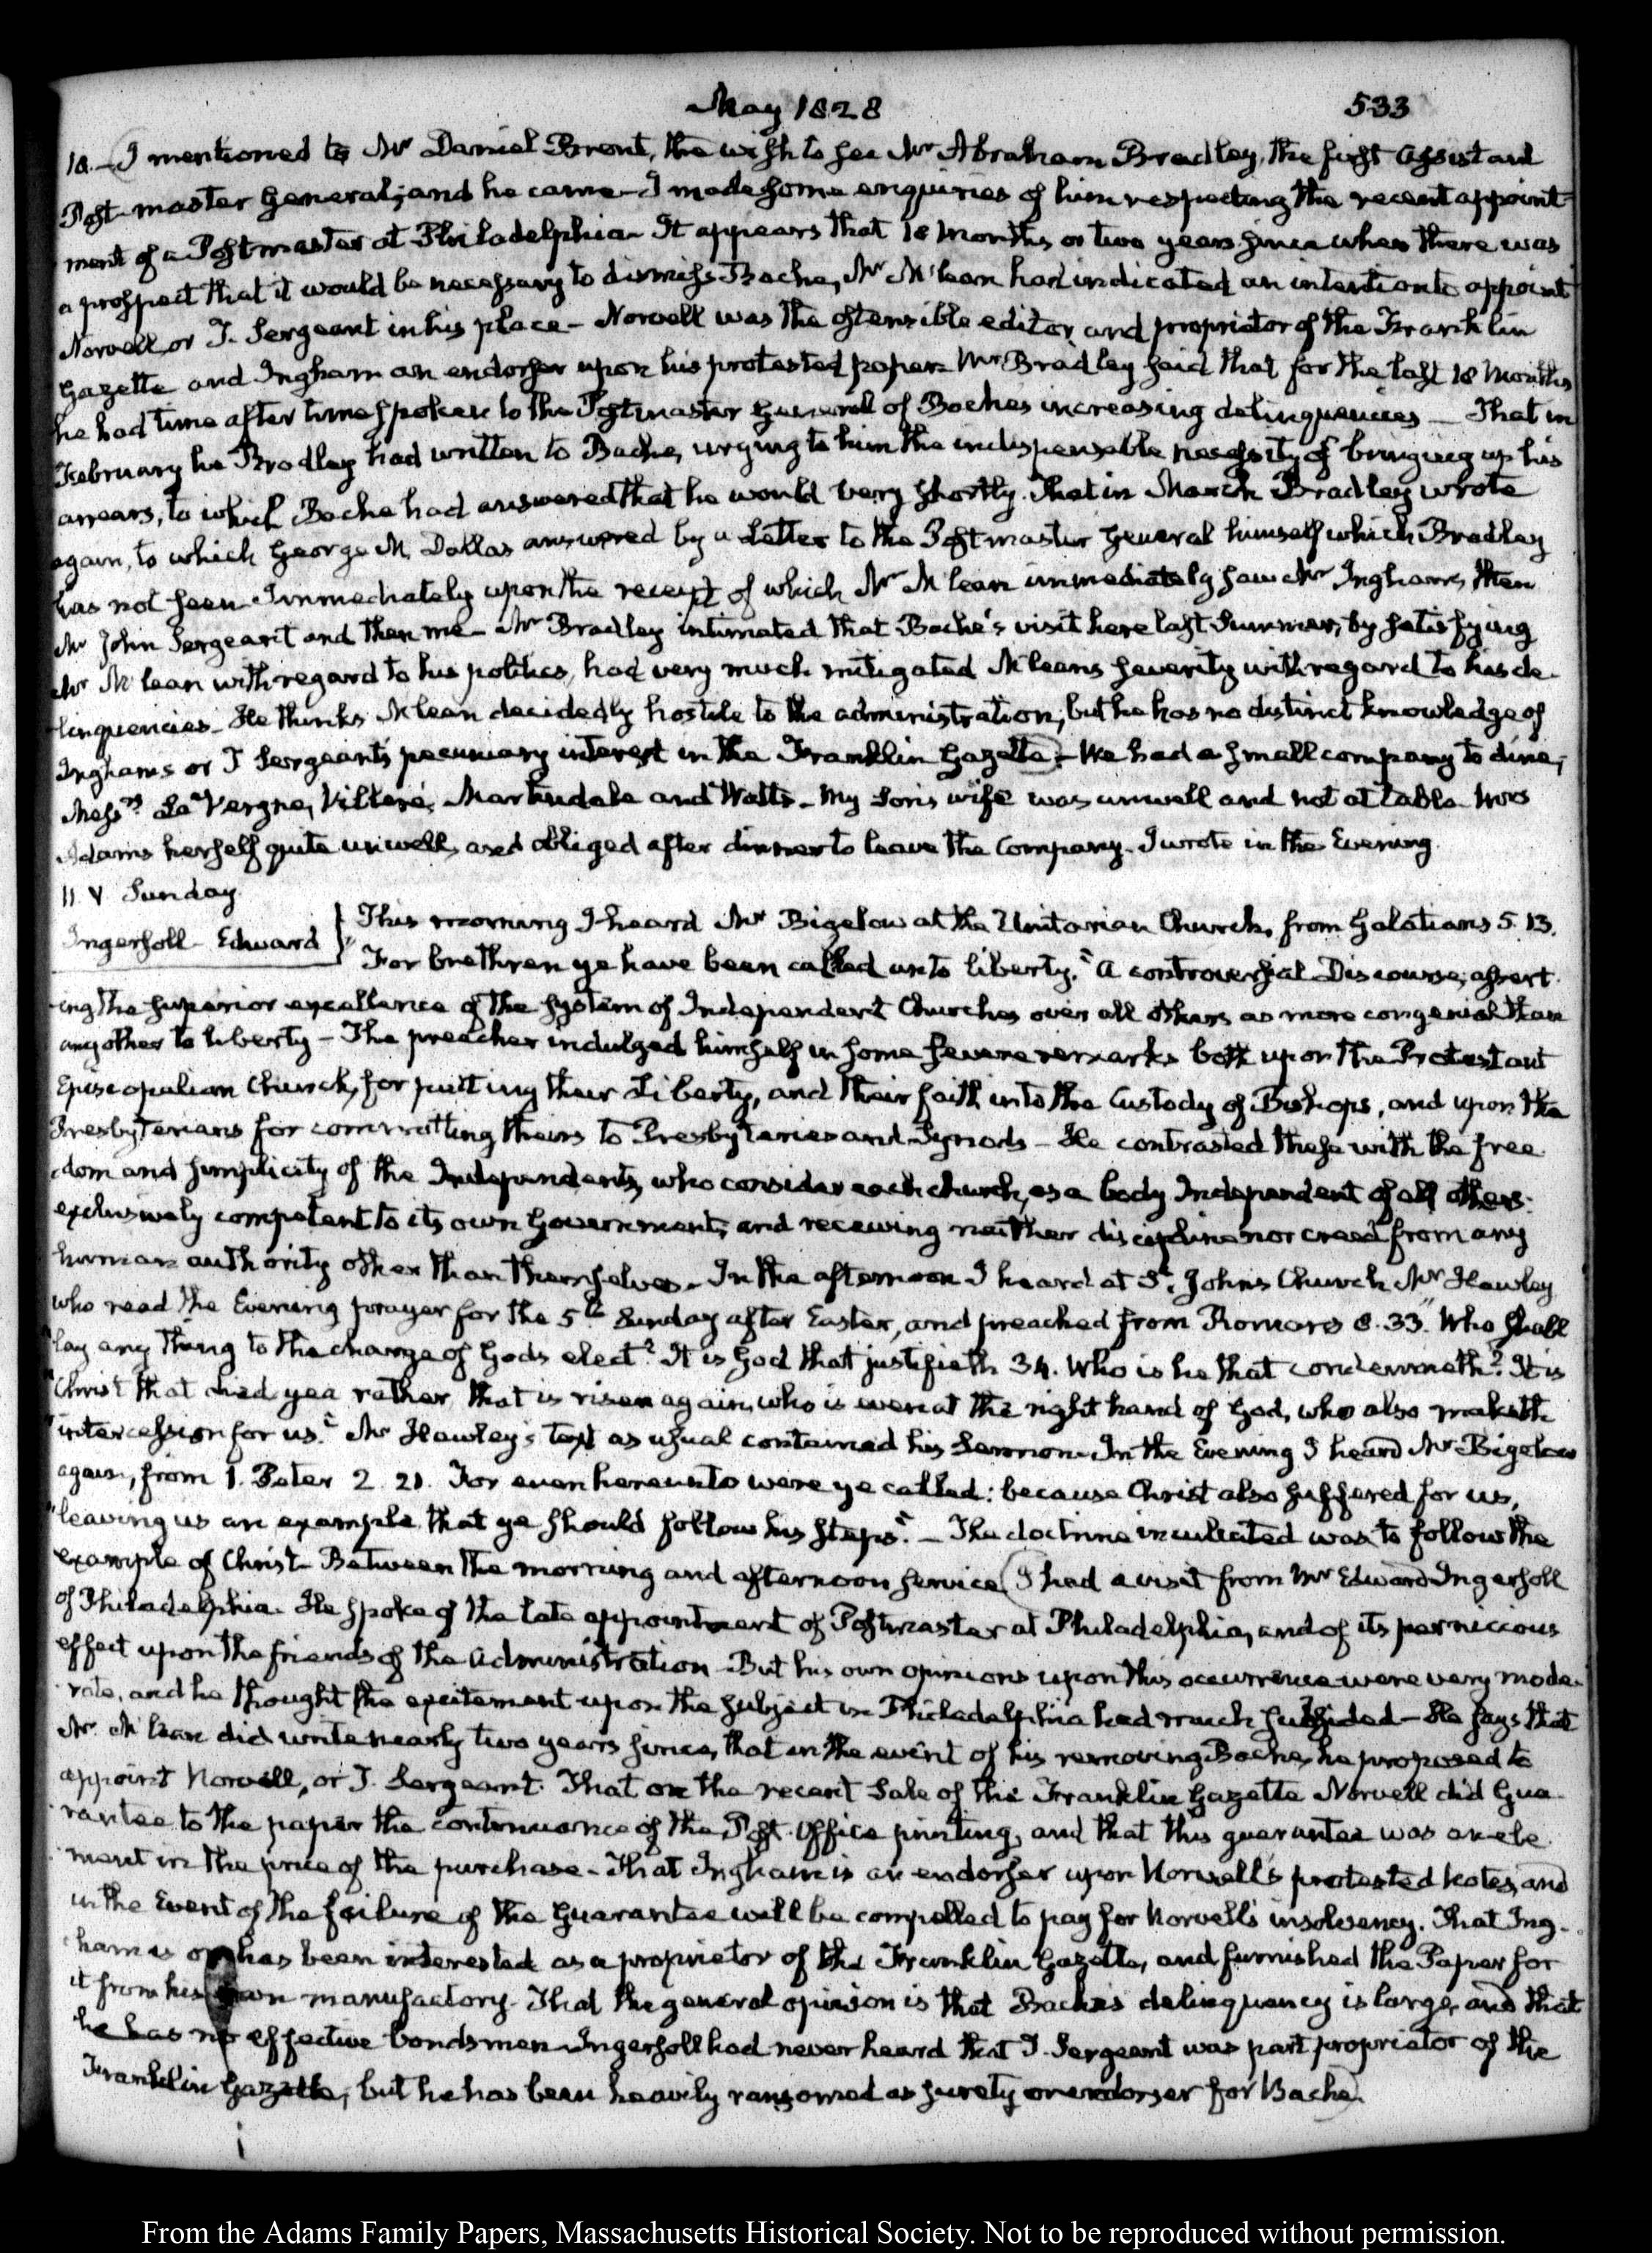 May 1828 533
10.—I mentioned to Mr Daniel Brent, the wish to see Mr Abraham Bradley, the first assistant
Post-master General; and he came—I made some enquiries of him respecting the recent appoint-
ment of a Postmaster at Philadelphia. It appears that 18 Months or two years since when there was
a prospect that it would be necessary to dismiss Bache, Mr McLean had indicated an intention to appoint
Norvell or T. Sergeant in his place—Norvell was the ostensible editor and proprietor of the Franklin
Gazette and Ingham an endorser upon his protested paper. Mr Bradley said that for the last 18 Months
he had time after time spoken to the Postmaster General of Baches increasing delinquencies—That in
February he Bradley had written to Bache, urging to him the indispensable necessity of bringing up his
arrears, to which Bache had answered that he would very shortly. That in March Bradley wrote
again, to which George M. Dallas answered by a letter to the Postmaster General himself which Bradley
has not seen. Immediately upon the receipt of which Mr McLean immediately saw Mr Ingham, then
Mr John Sergeant and then me—Mr Bradley intimated that Bache's visit here last Summer, by satisfying
Mr McLean with regard to his politics, had very much mitigated McLeans severity with regard to his de-
-linquencies. He thinks McLean decidedly hostile to the administration; but he has no distinct knowledge of
Inghams or T Sergeants pecuniary interest in the Franklin Gazette—We had a small company to dine;
Messrs. La Vergne, Villeré, Martindale and Watts—My Son's wife was unwell and not at table. Mrs
Adams herself quite unwell, and obliged after dinner to leave the Company. I wrote in the Evening.
11. V Sunday.
Ingersoll—Edward } This morning I heard Mr Bigelow at the Unitarian Church, from Galatians 5. 13.
For brethren ye have been called unto liberty." A controversial Discourse, assert-
-ing the superior excellence of the system of Independent Churches over all others as more congenial than
any other to liberty—The preacher indulged himself in some severe remarks both upon the Protestant
Episcopalian Church, for putting their Liberty, and their faith into the Custody of Bishops, and upon the
Presbyterians for committing theirs to Presbyteries and Synods—He contrasted these with the free-
dom and simplicity of the Independents, who consider each church, as a body Independent of all others:
exclusively competent to its own Government, and receiving neither discipline nor creed from any
human authority other than themselves—In the afternoon I heard at St. John's Church Mr Hawley
who read the Evening prayer for the 5th Sunday after Easter, and preached from Romans 8. 33. "Who shall
"lay any thing to the charge of Gods elect? It is God that justifieth 34. Who is he that condemneth? It is
"Christ that died yea rather that is risen again, who is even at the right hand of God, who also maketh
"intercession for us." Mr Hawley's text as usual contained his Sermon. In the Evening I heard Mr Bigelow
again, from 1. Peter 2. 21. For even hereunto were ye called: because Christ also suffered for us,
"leaving us an example that ye should follow his steps."—The doctrine inculcated was to follow the
example of Christ—Between the morning and afternoon service I had a visit from Mr Edward Ingersoll
of Philadelphia. He spoke of the late appointment of Postmaster at Philadelphia, and of its pernicious
effect upon the friends of the Administration—But his own opinions upon this occurrence were very mode-
rate, and he thought the excitement upon the subject in Philadelphia had much subsided—He says that
Mr McLean did write nearly two years since, that in the event of his removing Bache, he proposed to
appoint Norvell, or T. Sergeant. That on the recent Sale of the Franklin Gazette Norvell did Gua-
rantee to the paper the continuance of the Post-Office printing, and that this guarantee was an ele-
ment in the price of the purchase—That Ingham is an endorser upon Norvell's protested Notes, and
in the Event of the failure of the Guarantee will be compelled to pay for Norvell's insolvency. That Ing-
ham is or has been interested as a proprietor of the Franklin Gazette, and furnished the Paper for
it from his own manufactory. That the general opinion is that Bache's delinquency is large, and that
he has no effective bondsmen—Ingersoll had never heard that T. Sergeant was part proprietor of the
Franklin Gazette, but he has been heavily ransomed as surety or endorser for Bache.
From the Adams Family Papers, Massachusetts Historical Society. Not to be reproduced without permission.